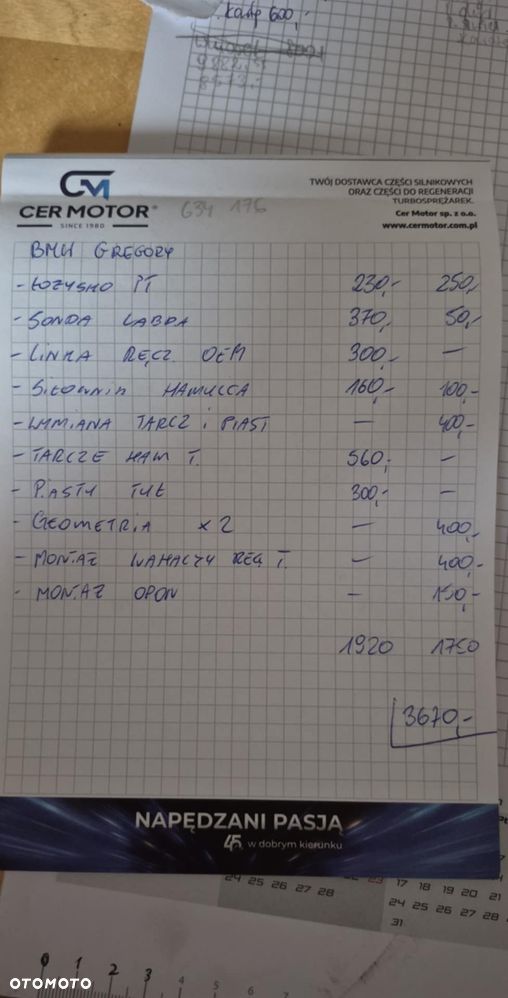 Karp 600,-
CM
CER MOTOR®
SINCE 1980
634 176
TWÓJ DOSTAWCA CZĘŚCI SILNIKOWYCH
ORAZ CZĘŚCI DO REGENERACJI
TURBOSPRĘŻAREK.
Cer Motor sp. z o.o.
www.cermotor.com.pl
BMW GREGORY
- ŁOŻYSKO PT 230,- 250,-
- SONDA LABDA 370,- 50,-
- LINKA RĘCZ. OEM 300,- —
- SIŁOWNIK HAMULCA 160,- 100,-
- WYMIANA TARCZ i PIAST — 400,-
- TARCZE HAM T. 560,- —
- PIASTY TYŁ 300,- —
- GEOMETRIA x2 — 400,-
- MONTAŻ WAHACZY REG T. — 400,-
- MONTAŻ OPON — 150,-
1920 1750
3670,-
NAPĘDZANI PASJĄ
45 w dobrym kierunku
24 25 26 27 28
22 23
17 18 19 20 21
24 25 26 27 28
31
0 1 2 3 4 5 6 7
OTOMOTO